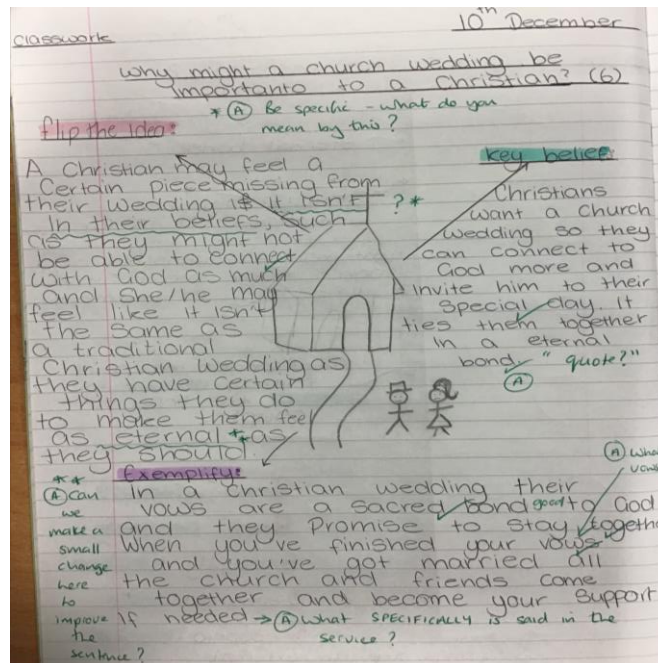 10th December
classwork
Why might a church wedding be
importanto to a Christian? (6)
* (A) Be specific - what do you
mean by this?
flip the idea:
A Christian may feel a
Certain piece missing from
their wedding if it isn't ? *
In their beliefs, such
as they might not
be able to connect
with God as much
and She/he may
feel like it isn't
the same as
a traditional
Christian Wedding as
they have certain
things they do
to make them feel
as eternal ** as
they should.
key belief:
Christians
want a church
wedding so they
can connect to
God more and
invite him to their
Special day it
ties them together
in a eternal
bond "quote?"
(A)
Exemplify:
In a Christian wedding their
vows are a sacred bond good to God
and they Promise to stay togeth
When you've finished your vows
and you've got married all
the church and friends come
together and become your Support
If needed → (A) What SPECIFICALLY is said in the
service?
(A) What
vows
**
(A) Can
we
make a
small
change
here
to
improve
the
sentence?